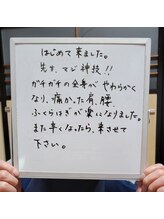 はじめて来ました。
先生、マジ神技!!
ガチガチの全身が やわらかく
なり、痛かった肩、腰、
ふくらはぎが楽になりました。
また辛くなったら、来させて
下さい。